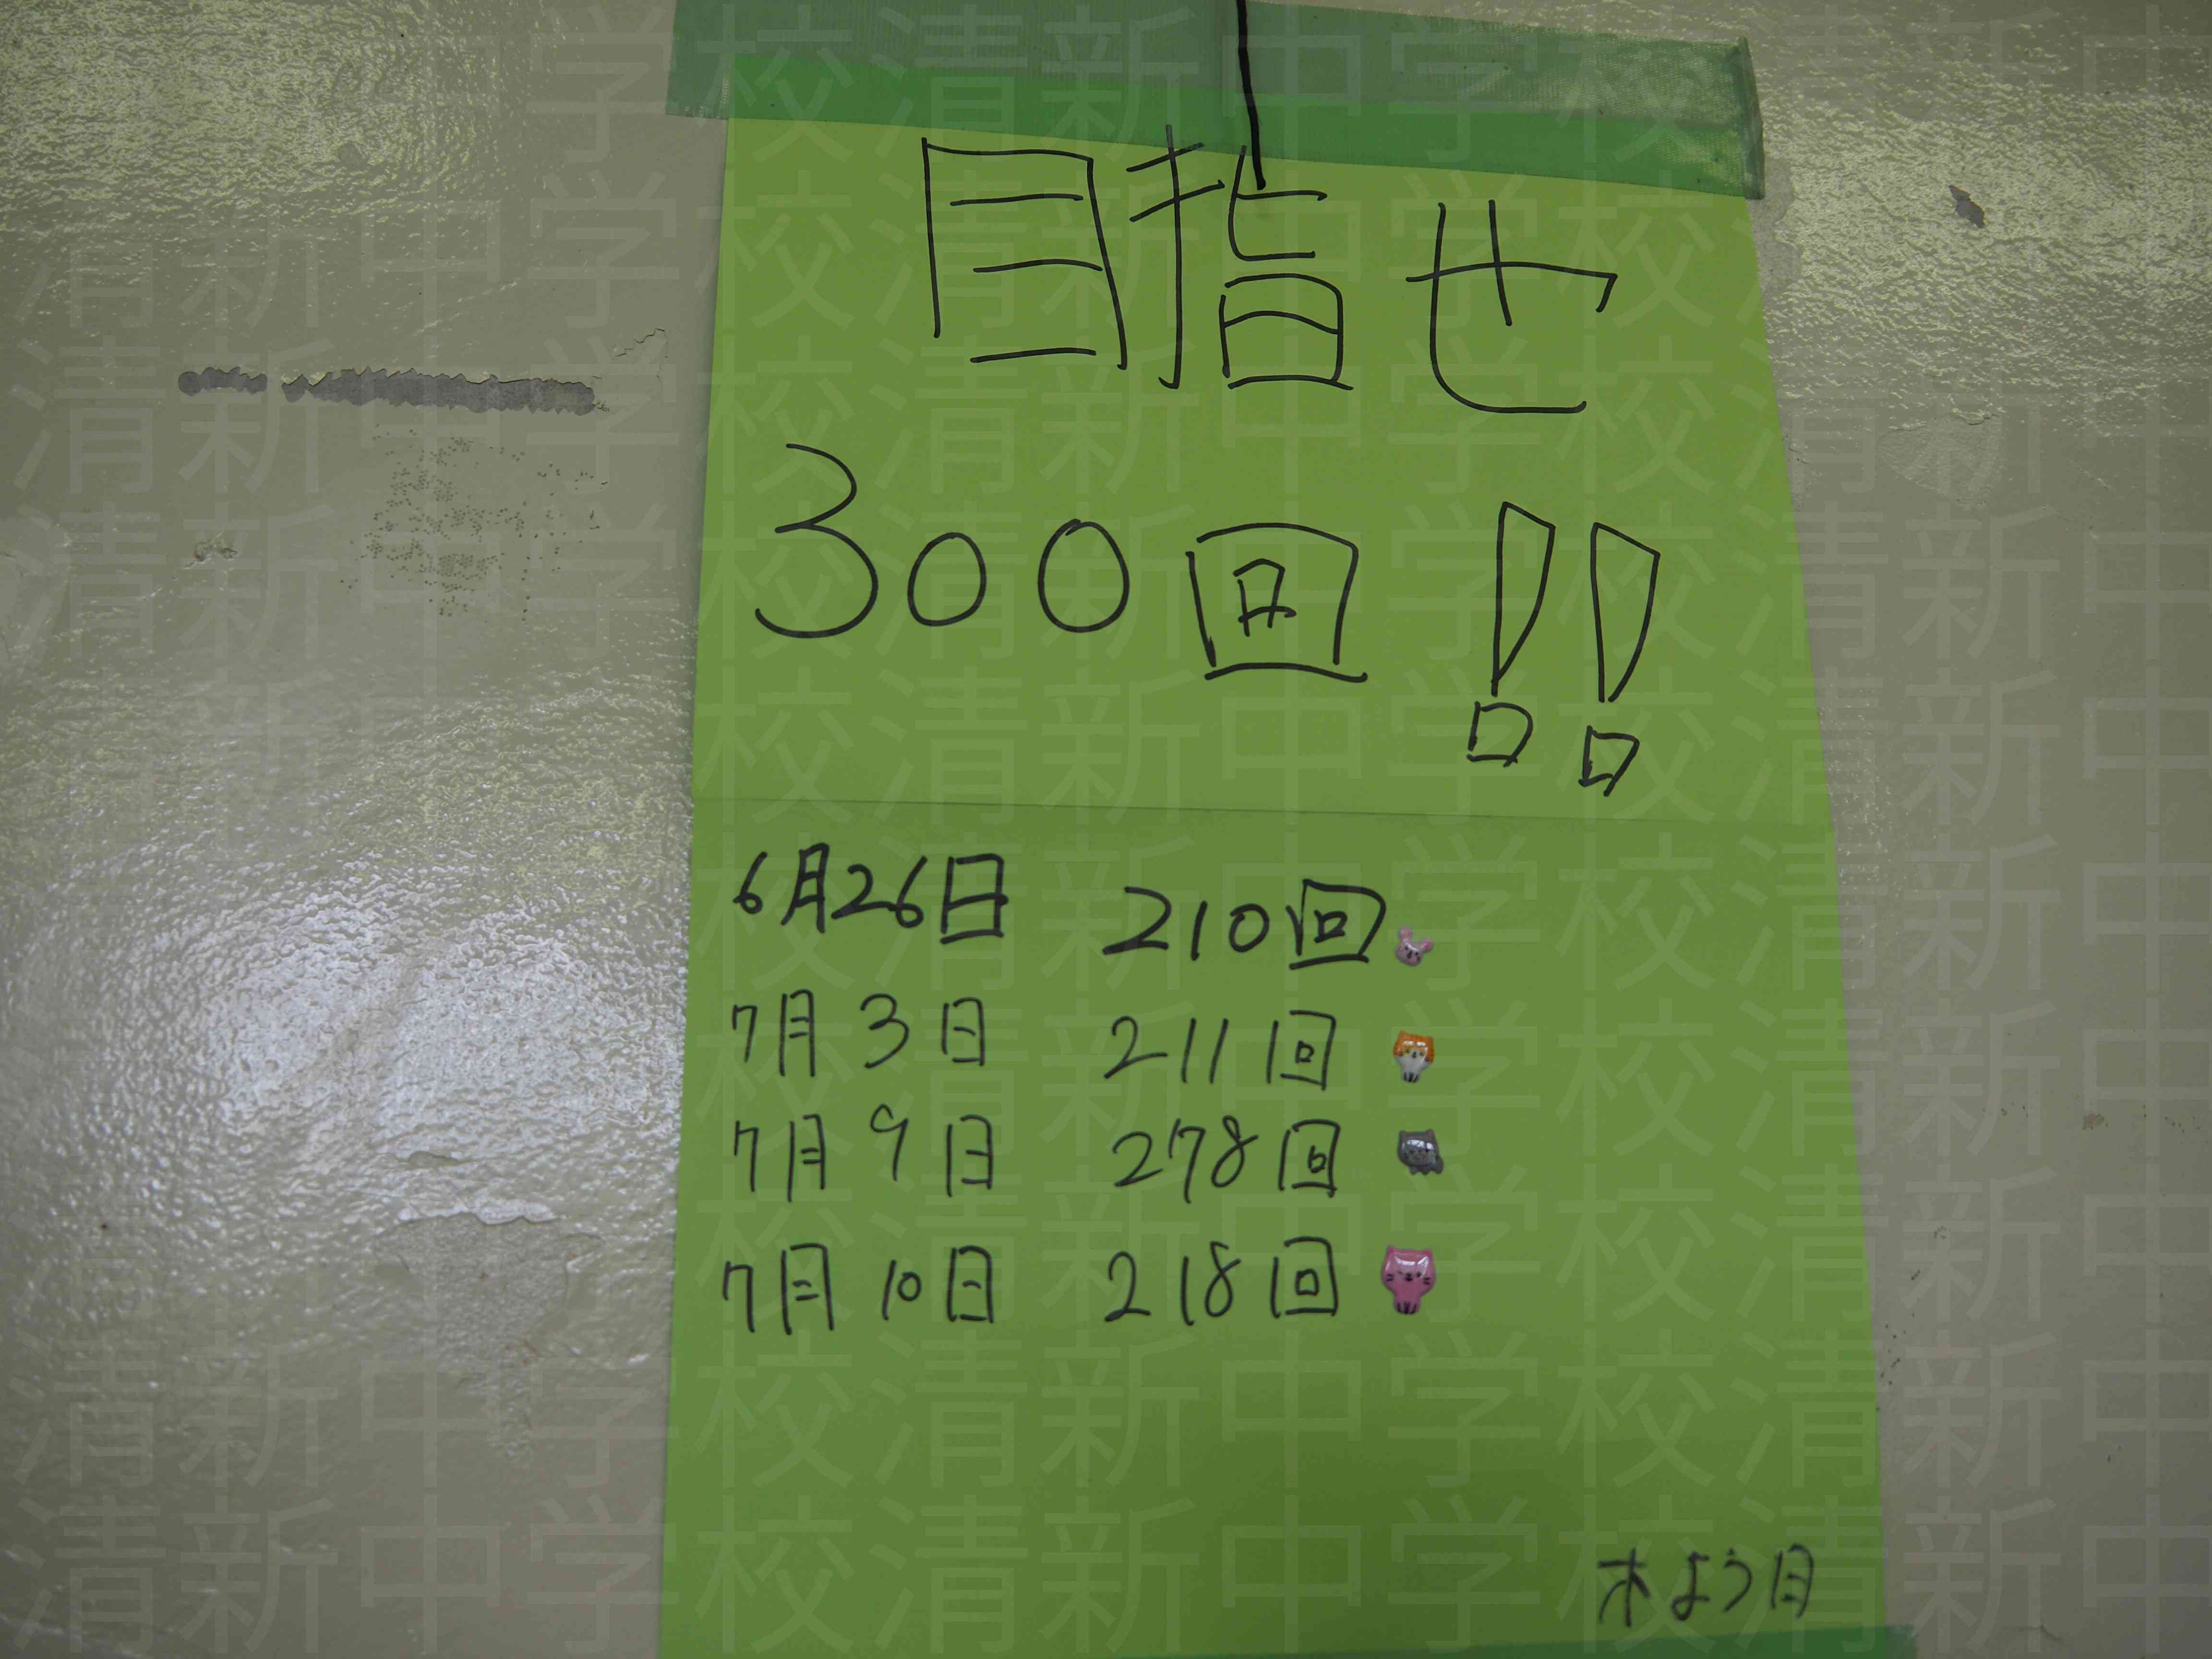 目指せ
300回!!
6月26日 210回
7月3日 211回
7月9日 278回
7月10日 218回
木よう日
清新中学校